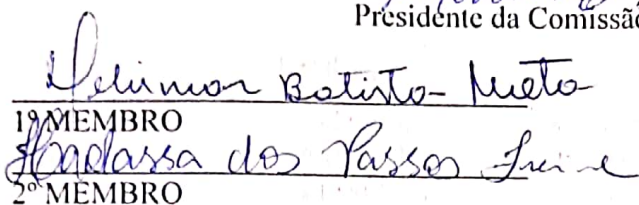 Presidente da Comissão
Batista Neto
1º MEMBRO
Hadassa dos Passos Freire
2º MEMBRO